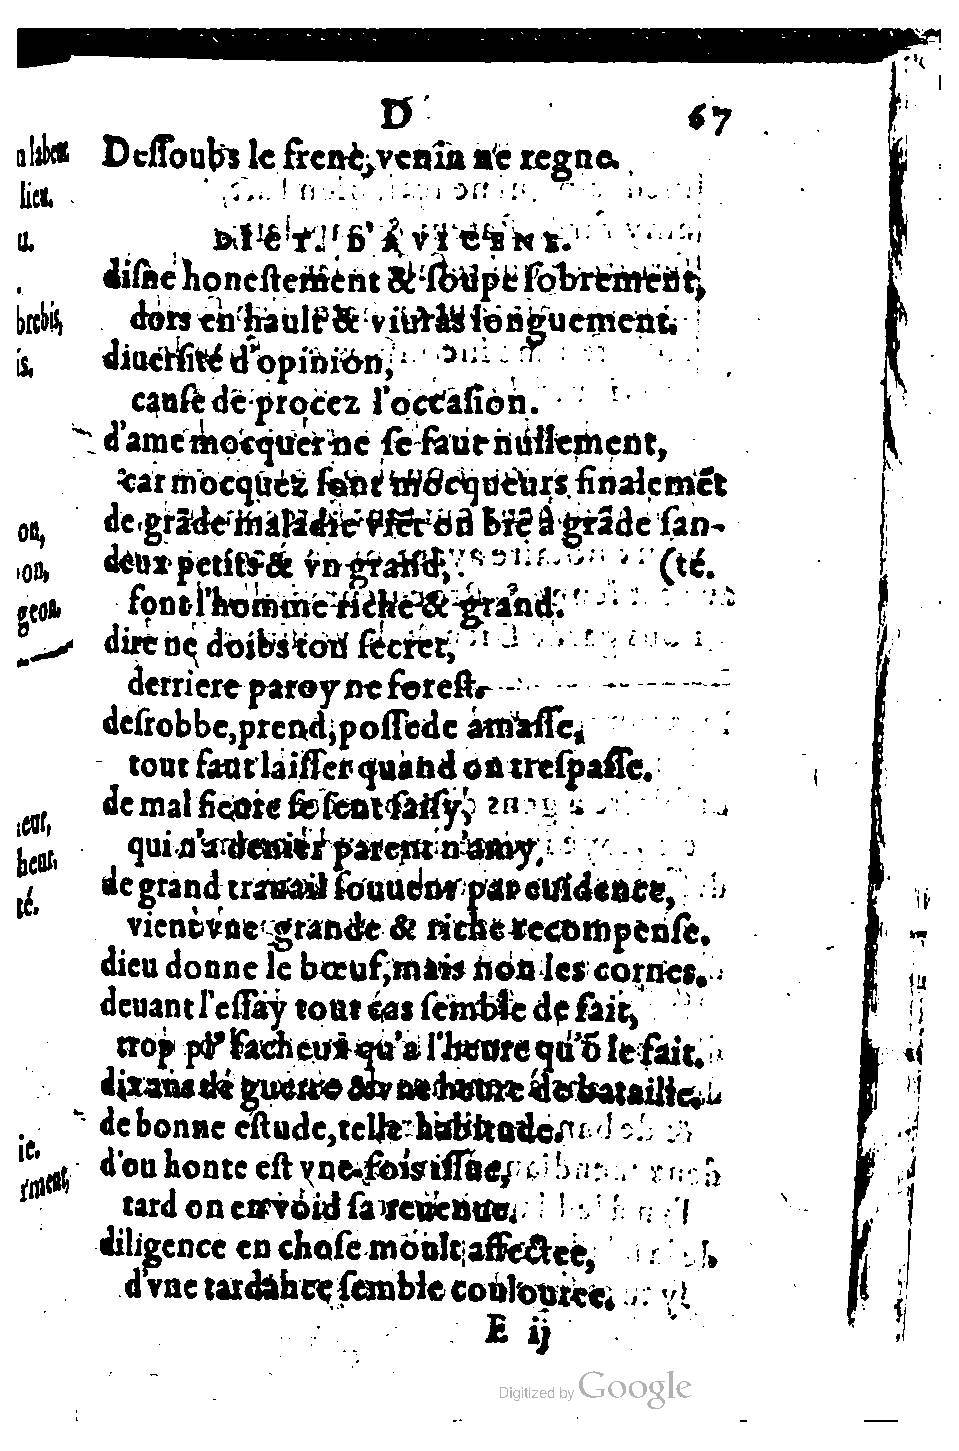 D 67
Deſſoubs le frene, venin ne regne.
DICT. D'AVICENE.
diſne honeſtement & ſoupe ſobrement,
dors en hault & viuras longuement.
diuerſité d'opinion,
cauſe de procez l'occaſion.
d'ame mocquer ne ſe faut nullement,
car mocquez ſont mocqueurs finalemẽt
de grãde maladie viẽt on biẽ à grãde ſan-
deux petits & vn grand, (té.
font l'homme riche & grand.
dire ne doibs ton ſecret,
derriere paroy ne foreſt.
deſrobbe, prend, poſſede amaſſe,
tout faut laiſſer quand on treſpaſſe.
de mal ſe ſent ſaiſy,
qui n'a denier parent n'amy.
de grand trauail ſouuent par euidence,
vient vne grande & riche recompenſe.
dieu donne le bœuf, mais non les cornes.
deuant l'eſſay tout cas ſemble de fait,
trop plꝰ facheux qu'a l'heure qu'õ le fait.
dix ans de guerre & vne heure de bataille.
de bonne eſtude, telle habitude.
d'ou honte eſt vne fois iſſue,
tard on en void ſa reuenue.
diligence en choſe moult affectee,
d'vne tardance ſemble coulouree.
E ij
n labeur
lieu.
u.
brebis,
is.
on,
on,
geon.
eur,
heur.
té.
ie.
rment,
Digitized by Google